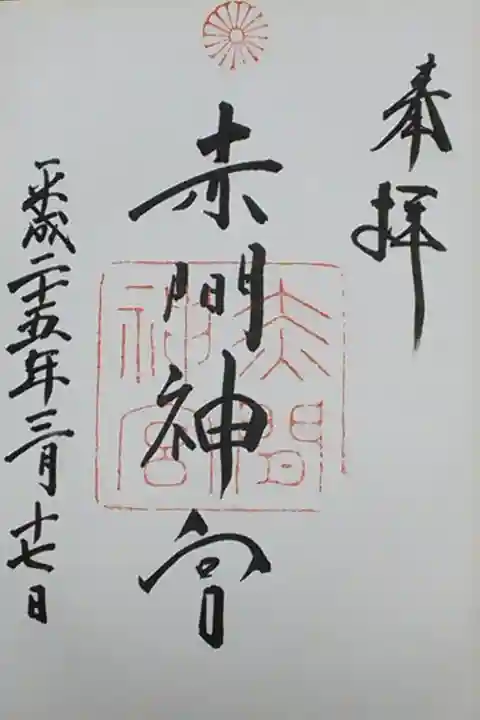 奉拝
赤間神宮
赤間神宮
平成二十五年三月十七日